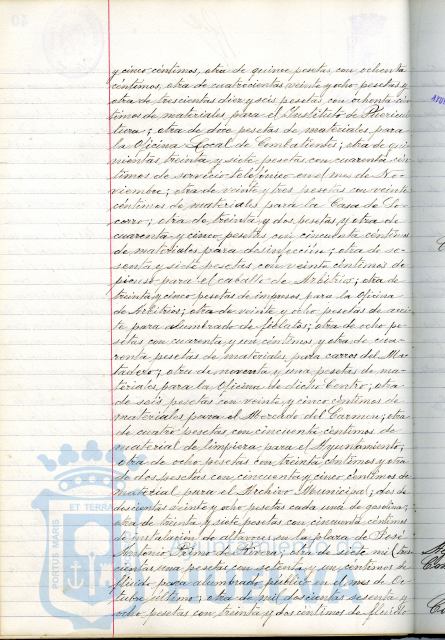 y cinco céntimos, otra de quince pesetas con ochenta
céntimos, otra de cuatrocientas veinte y ocho pesetas y
otra de trescientas diez y seis pesetas con ochenta cén-
timos de materiales para el Instituto de Puericul-
tura; otra de doce pesetas de materiales para
la Oficina Local de Combatientes; otra de qui-
nientas treinta y siete pesetas con cuarenta cén-
timos de servicio telefónico en el mes de No-
viembre; otra de veinte y tres pesetas con veinte
céntimos de materiales para la Casa de So-
corro; otra de treinta y dos pesetas y otra de
cuarenta y cinco pesetas con cincuenta céntimos
de materiales para desinfección; otra de se-
senta y siete pesetas con veinte céntimos de
pienso para el caballo de Arbitrios; otra de
treinta y cinco pesetas de impresos para la Oficina
de Arbitrios; otra de veinte y ocho pesetas de acei-
te para alumbrado de fielatos; otra de ocho pe-
setas con cuarenta y un céntimos y otra de cua-
renta pesetas de materiales para carros del Ma-
tadero; otra de noventa y una pesetas de ma-
teriales para la Oficina de dicho Centro; otra
de seis pesetas con veinte y cinco céntimos de
materiales para el Mercado del Carmen; otra
de cuatro pesetas con cincuenta céntimos de
material de limpieza para el Ayuntamiento;
otra de ocho pesetas con treinta céntimos y otra
de dos pesetas con cincuenta y cinco céntimos de
material para el Archivo Municipal; dos de
doscientas veinte y ocho pesetas cada una de gasolina;
otra de treinta y siete pesetas con cincuenta céntimos
de instalación de altavoces en la plaza de José
Antonio Primo de Rivera; otra de siete mil tres-
cientas una pesetas con setenta y un céntimos de
flúido para alumbrado público en el mes de Oc-
tubre último; otra de mil doscientas sesenta y
ocho pesetas con treinta y dos céntimos de flúido
PORTUS MARIS
ET TERRA